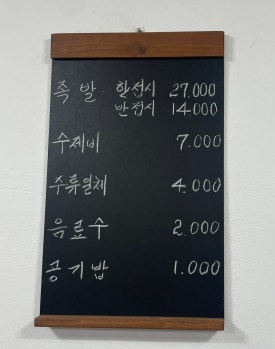 족발 한접시 27.000
반접시 14.000
수제비 7.000
주류일체 4.000
음료수 2.000
공기밥 1.000